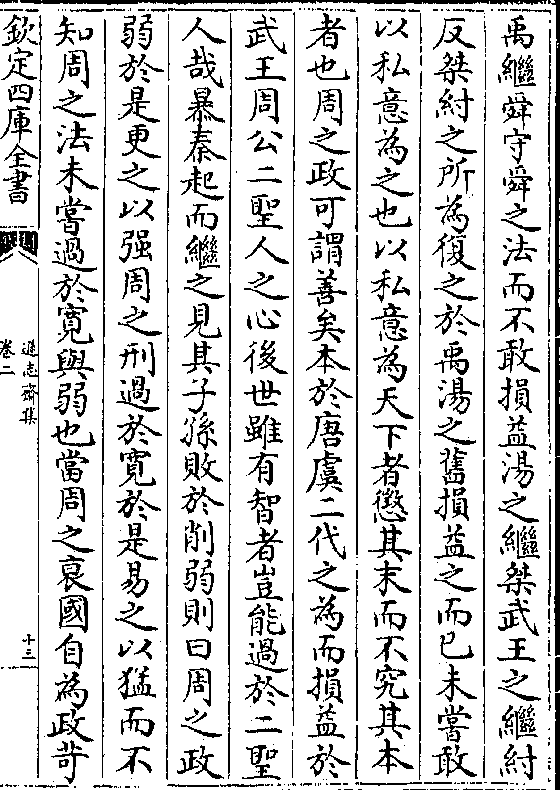 禹繼舜守舜之法而不敢損益湯之繼桀武王之繼紂
反桀紂之所為復之於禹湯之舊損益之而已未嘗敢
以私意為之也以私意為天下者懲其末而不究其本
者也周之政可謂善矣本於唐虞二代之為而損益於
武王周公二聖人之心後世雖有智者豈能過於二聖
人哉暴秦起而繼之見其子孫敗於削弱則曰周之政
弱於是更之以强周之刑過於寛於是易之以猛而不
知周之法未嘗過於寛與弱也當周之衰國自為政苛
欽定四庫全書
遜志齋集
卷二
十三